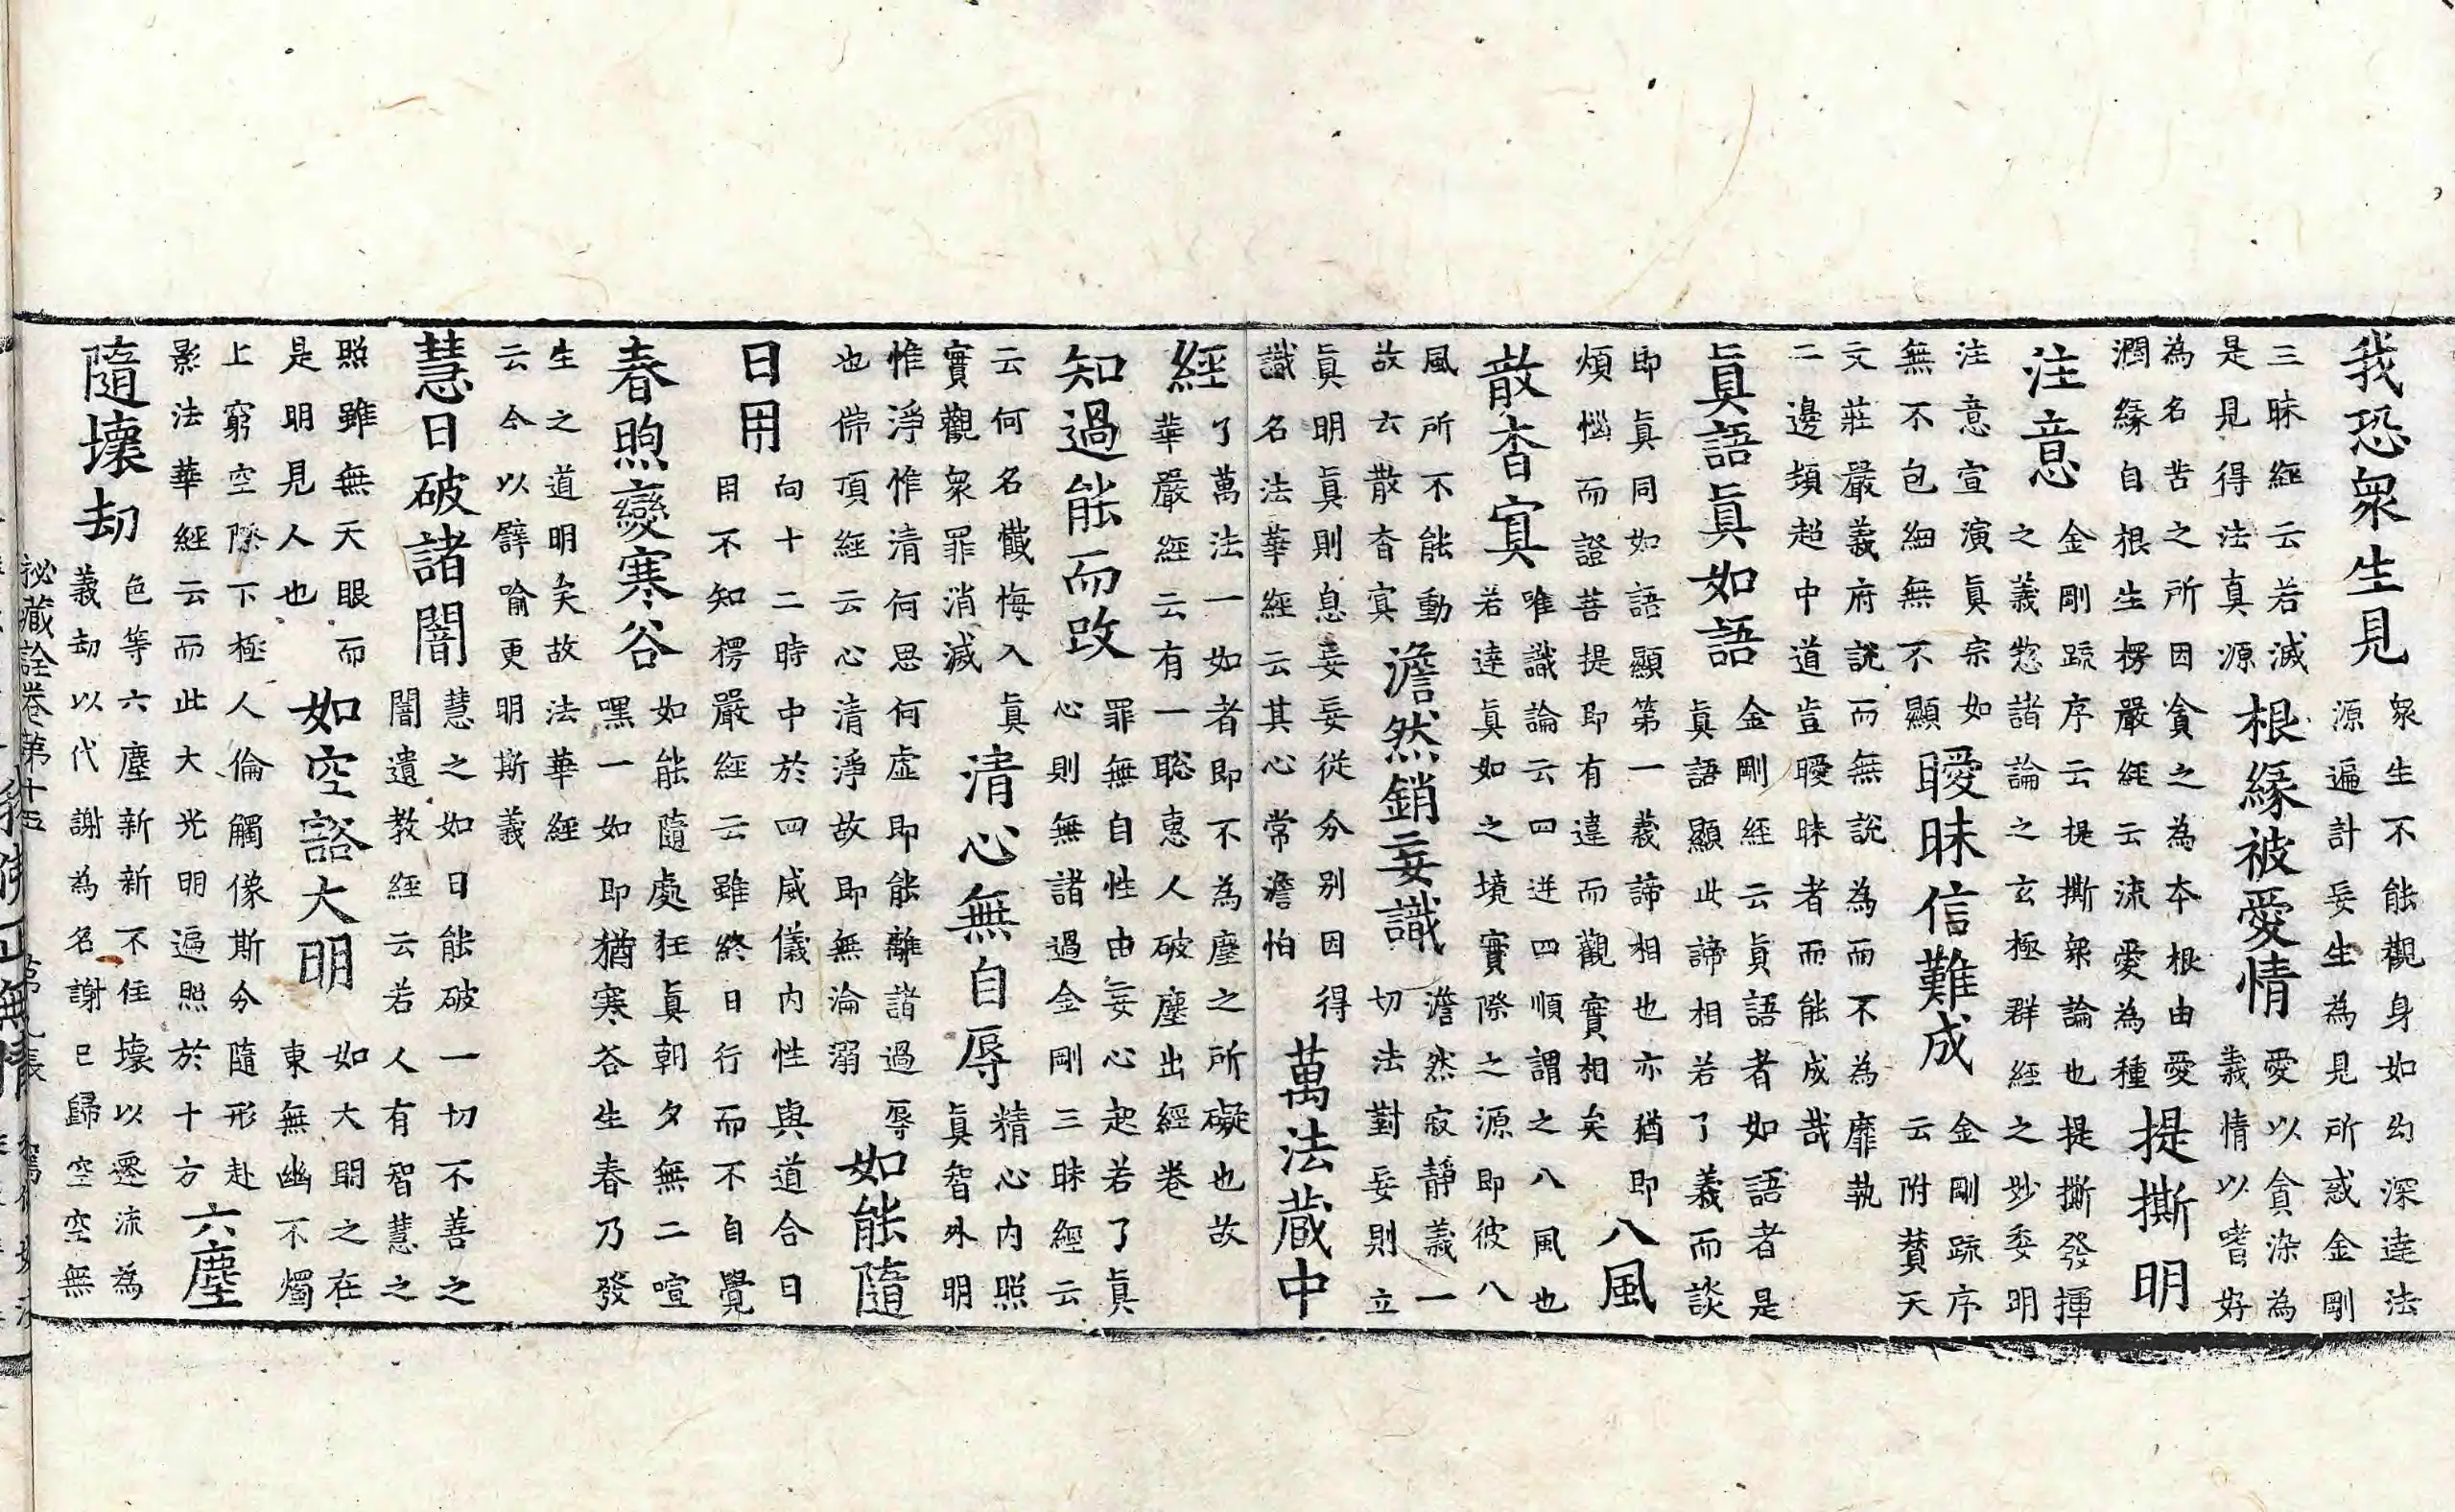 我恐衆生見
衆生不能觀身如幻深達法
源遍計妄生為見所惑金剛
三昧經云若滅
是見得法真源
根緣被愛情
愛以貪染為
義情以嗜好
為名苦之所因貪之為本根由愛
潤緣自根生楞嚴經云流愛為種
提撕明
注意
金剛䟽序云提撕衆論也提撕發揮
之義惣諸論之玄極群經之妙委明
注意宣演眞宗如
無不包細無不顯
曖昧信難成
金剛䟽序
云附賛天
文莊嚴義府說而無說為而不為靡執
二邊頻超中道豈曖昧者而能成哉
眞語眞如語
金剛經云眞語者如語者是
眞語顯此諦相若了義而談
即眞同如語顯第一義諦相也亦猶即
煩惱而證菩提即有違而觀實相矣
八風
散杳寘
唯識論云四逆四順謂之八風也
若達眞如之境實際之源即彼八
風所不能動
故云散杳寘
澹然銷妄識
澹然寂靜義一
切法對妄則立
眞明眞則息妄妄從分別因得
識名法華經云其心常澹怕
萬法蔵中
經
了萬法一如者即不為塵之所礙也故
華嚴經云有一聰惠人破塵出經卷
知過能而改
罪無自性由妄心起若了眞
心則無諸過金剛三昧經云
云何名懺悔入眞
實觀衆罪消滅
清心無自辱
精心內照
眞智外明
惟淨惟清何思何虛即能離諸過辱
也佛頂經云心清淨故即無淪溺
如能隨
日用
向十二時中於四威儀內性與道合日
用不知楞嚴經云雖終日行而不自覺
春煦變寒谷
如能隨處狂眞朝夕無二喧
嘿一如即猶寒谷生春乃發
生之道明矣故法華經
云今以譬喻更明斯義
慧日破諸闇
慧之如日能破一切不善之
闇遺教經云若人有智慧之
照雖無天眼而
是明見人也
如空豁大明
如大明之在
東無幽不燭
上窮空際下極人倫觸像斯分隨形赴
影法華經云而此大光明遍照於十方
六塵
隨壞刧
色等六塵新新不住壞以遷流為
義刧以代謝為名謝已歸空空無
祕藏詮卷第十五